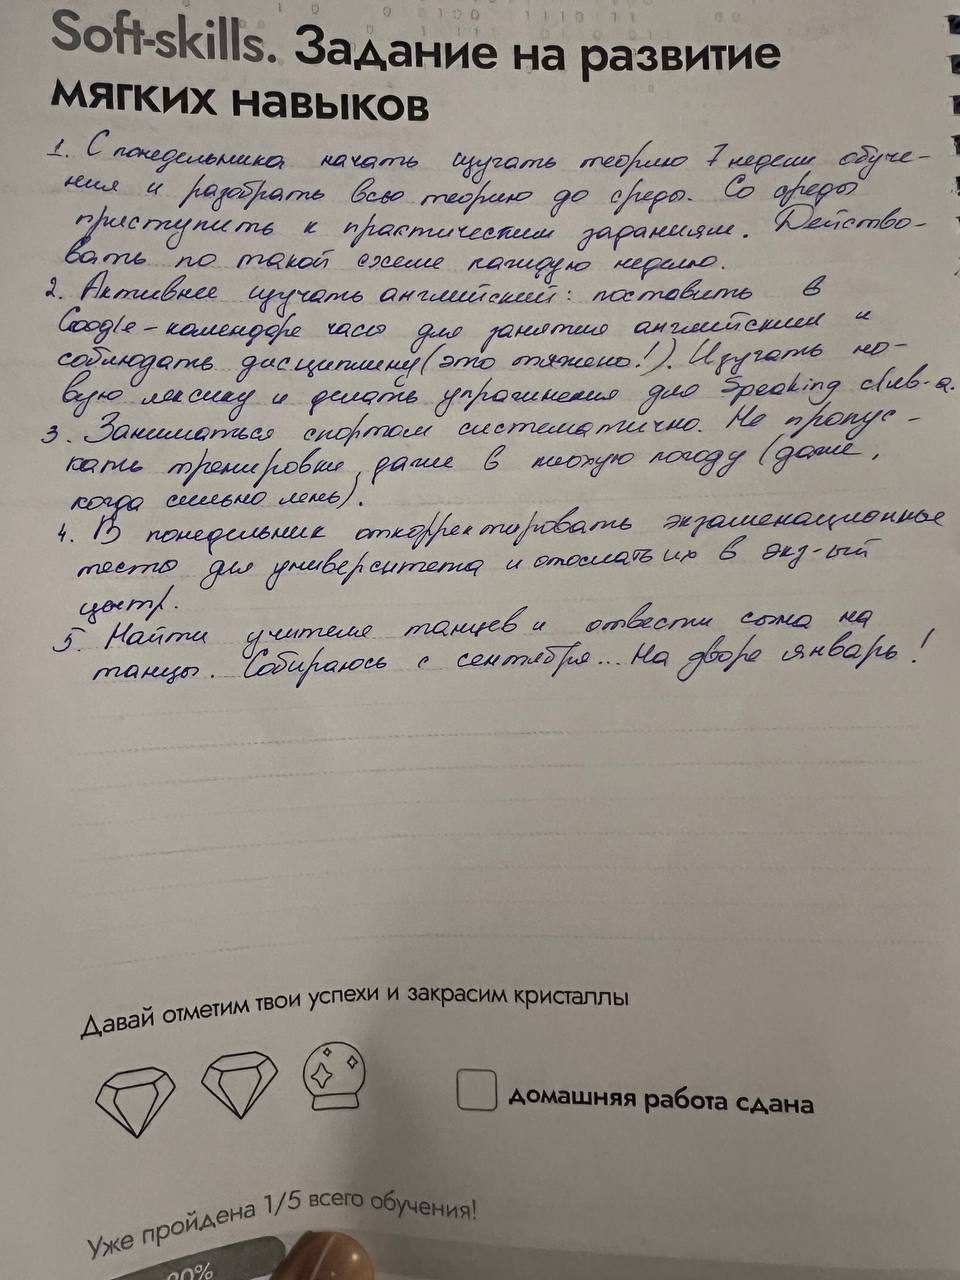 Soft-skills. Задание на развитие
мягких навыков
1. С понедельника начать изучать теорию 7 недели обуче-
ния и разобрать всю теорию до среды. Со среды
приступить к практическим заданиям. Действо-
вать по такой схеме каждую неделю.
2. Активнее изучать английский: поставить в
Google-календаре часы для занятия английским и
соблюдать дисциплину (это тяжело!). Изучать но-
вую лексику и делать упражнения для Speaking club-а.
3. Заниматься спортом систематично. Не пропус-
кать тренировки, даже в плохую погоду (даже,
когда сильно лень).
4. В понедельник откорректировать экзаменационные
тесты для университета и отослать их в экз-ый
центр.
5. Найти учителя танцев и отвести сына на
танцы. Собираюсь с сентября... На дворе январь!
Давай отметим твои успехи и закрасим кристаллы
домашняя работа сдана
Уже пройдена 1/5 всего обучения!
20%